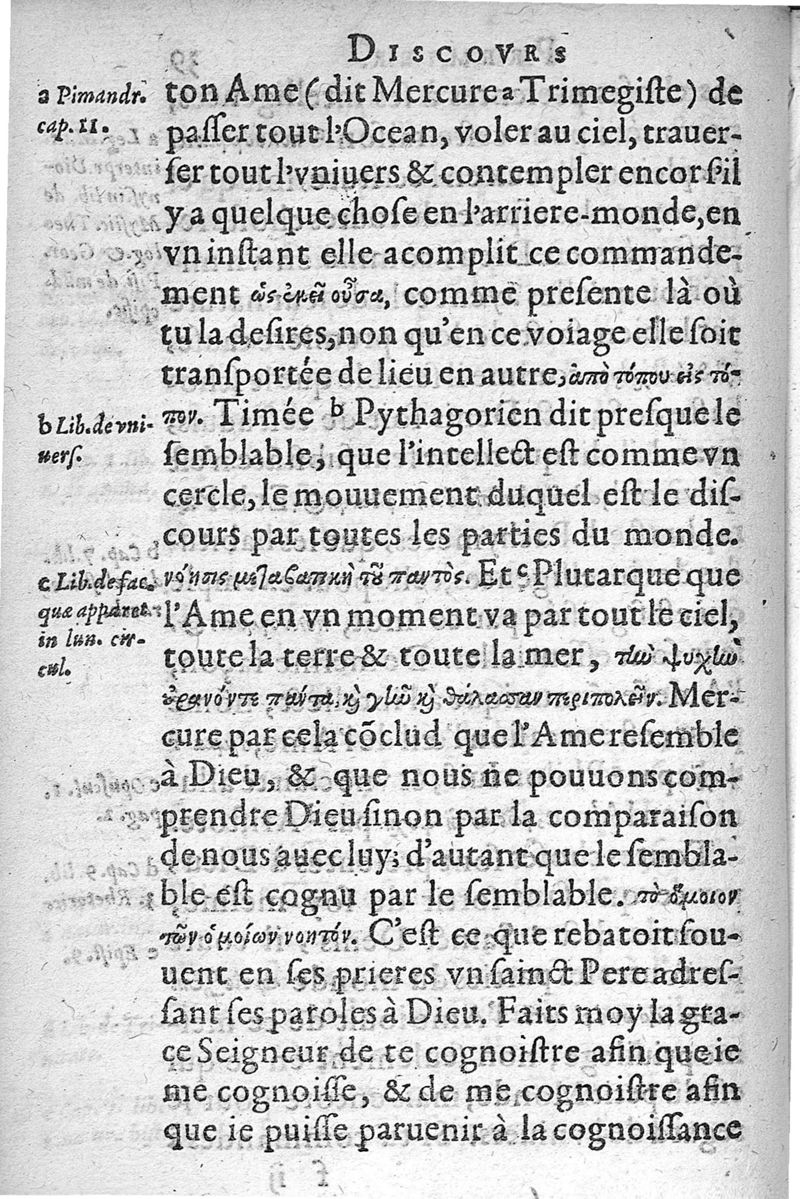 DISCOVRS
a Pimandr.
cap. 11.
ton Ame (dit Mercure a Trimegiſte) de
paſſer tout l'Ocean, voler au ciel, trauer-
ſer tout l'vniuers & contempler encor ſ'il
y a quelque choſe en l'arriere-monde, en
vn inſtant elle acomplit ce commande-
ment ὡς ἐκεῖ οὖσα, comme preſente là où
tu la deſires, non qu'en ce voiage elle ſoit
tranſportée de lieu en autre, ἀπὸ τόπου εἰς τό-
b Lib. de vni-
uerſ.
πον. Timée b Pythagorien dit preſque le
ſemblable, que l'intellect eſt comme vn
cercle, le mouuement duquel eſt le diſ-
cours par toutes les parties du monde.
c Lib. de fac.
quæ apparet
in lun. cir-
cul.
νόησις μεταβατικὴ τοῦ παντός. Et c Plutarque que
l'Ame en vn moment va par tout le ciel,
toute la terre & toute la mer, τὴν ψυχὴν
οὐρανόντε πάντα, καὶ γῆν καὶ θάλασσαν περιπολεῖν. Mer-
cure par cela cõclud que l'Ame reſemble
à Dieu, & que nous ne pouuons com-
prendre Dieu ſinon par la comparaiſon
de nous auec luy; d'autant que le ſembla-
ble eſt cognu par le ſemblable. τὸ ὅμοιον
τῶν ὁμοίων νοητόν. C'eſt ce que rebatoit ſou-
uent en ſes prieres vn ſainct Pere adreſ-
ſant ſes paroles à Dieu. Faits moy la gra-
ce Seigneur de te cognoiſtre afin que ie
me cognoiſſe, & de me cognoiſtre afin
que ie puiſſe paruenir à la cognoiſſance